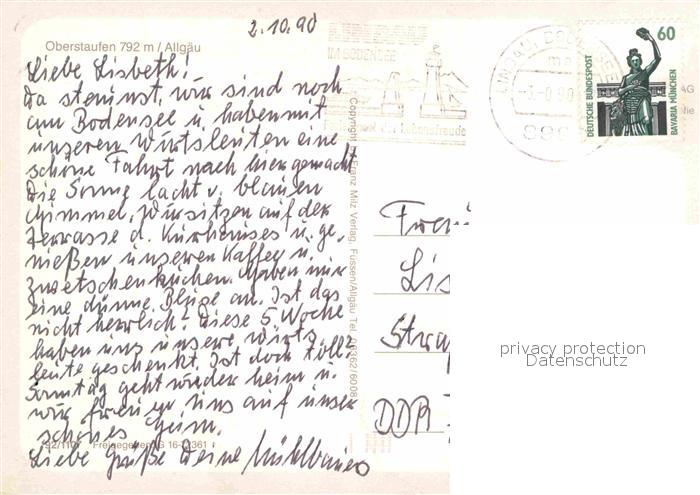 2.10.90
Oberstaufen 792 m / Allgäu
Liebe Lisbeth!
Da staunst, wir sind noch
am Bodensee u. haben mit
unseren Wirtsleuten eine
schöne Fahrt nach hier gemacht
Die Sonne lacht v. blauen
Himmel, wir sitzen auf der
Terrasse d. Kurhauses u. ge-
nießen unseren Kaffee u.
Zwetschenkuchen. Haben nur
eine dünne Bluse an. Ist das
nicht herrlich? Diese 5 Woche
haben uns unsere Wirts
leute geschenkt. Ist doch toll?
Sonntag geht wieder heim u.
wir freuen uns auf unser
schönes Heim.
Liebe Grüße Deine Mühlbauer
Freigegeben G 16-
Copyright by Franz Milz Verlag, Füssen/Allgäu Tel. 08362/6008
IM BODENSEE
Lebensfreude
LINDAU, BODENSEE
60
DEUTSCHE BUNDESPOST
BAVARIA MÜNCHEN
Lis
DDR
privacy protection
Datenschutz